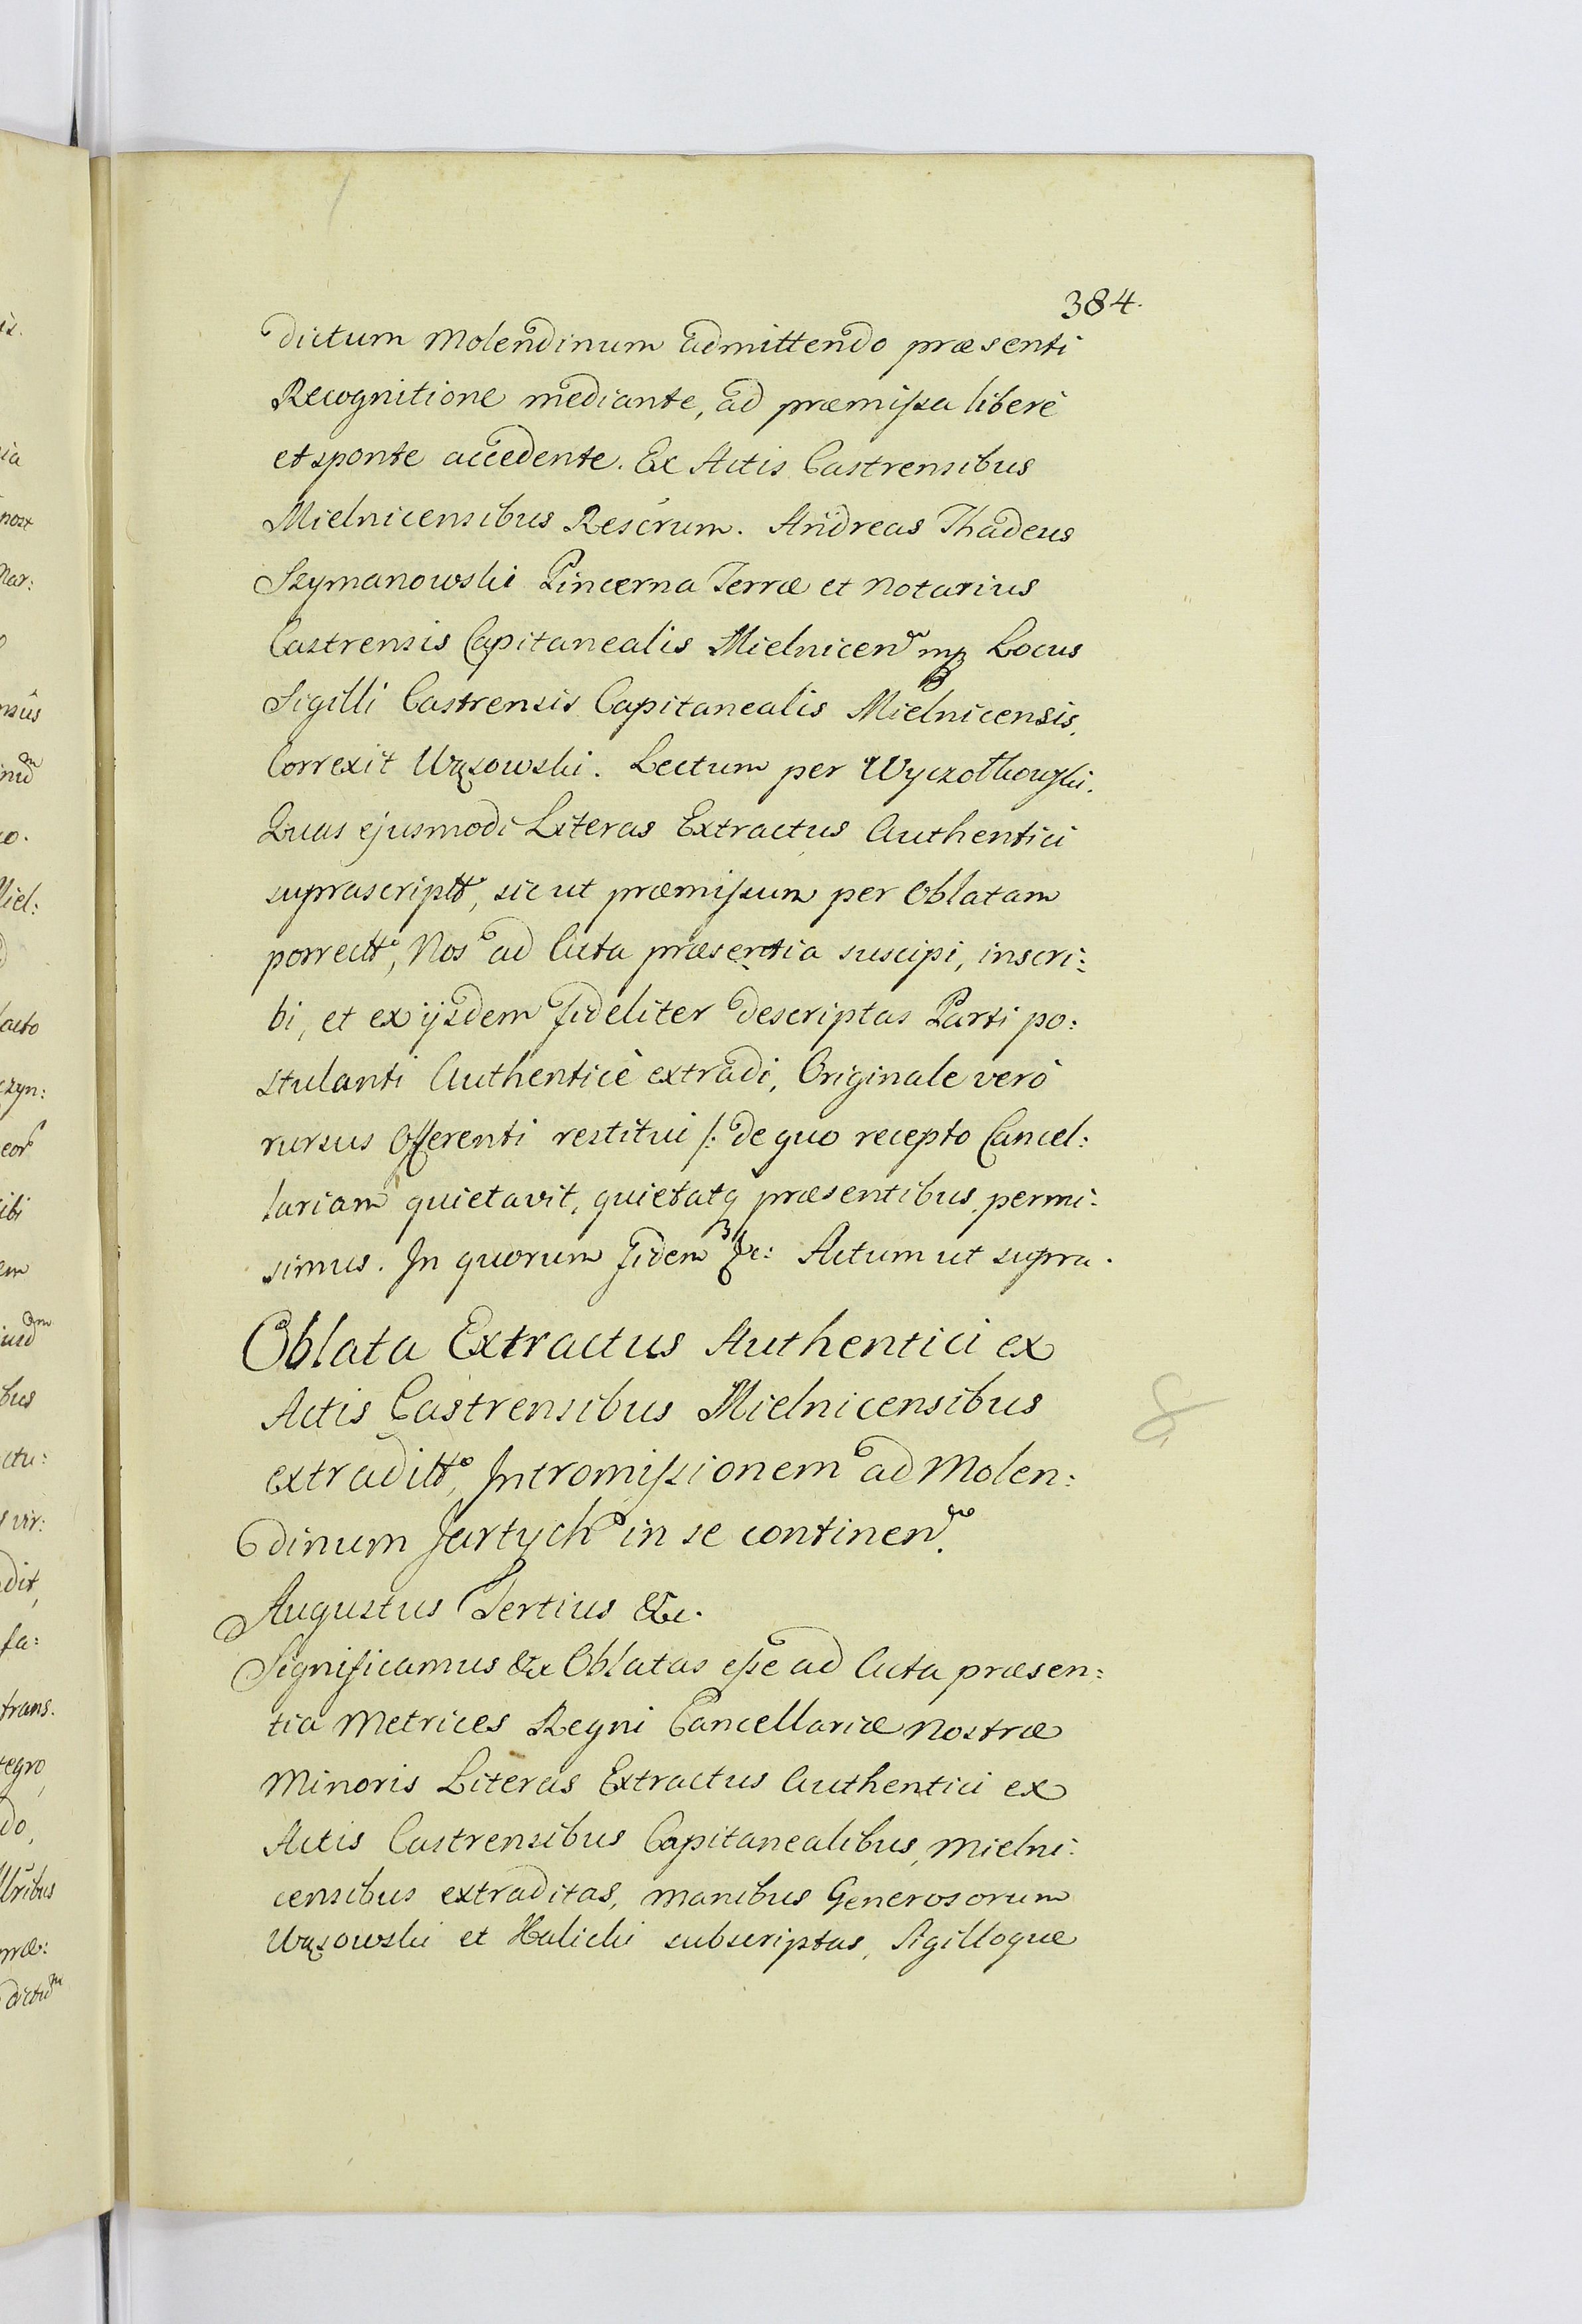 384.
dictum Molendinum admittendo præsenti
Recognitione mediante, ad præmissa liberè
et sponte accedente. Ex Actis Castrensibus
Mielnicensibus Rescrum. Andreas Thadeus
Szymanowski Pincerna Terræ et Notarius
Castrensis Capitanealis Mielnicen mp Locus
Sigilli Castrensis Capitanealis Mielnicensis.
Correxit Wąsowski. Lectum per Wyczołkowski.
Quas ejusmodi Literas Extractus Authentici
suprascriptt, sic ut præmissum per Oblatam
porrectt, Nos ad Acta præsentia suscipi, inscri:
bi, et ex ijsdem fideliter descriptas Parti po:
stulanti Authenticè extradi, Originale verò
rursus Offerenti restitui /: de quo recepto Cancel:
lariam quietavit, quietatq præsentibus permi:
simus. In quorum fidem &c: Actum ut supra.
Oblata Extractus Authentici ex
Actis Castrensibus Mielnicensibus
extraditt, Intromissionem ad Molen:
dinum Jartych in se continen.
8
Augustus Tertius &c.
Significamus &c Oblatas esse ad Acta præsen:
tia Metrices Regni Cancellariæ Nostræ
Minoris Literas Extractus Authentici ex
Actis Castrensibus Capitanealibus, Mielni:
censibus extraditas, manibus Generosorum
Wąsowski et Halicki subscriptas, Sigilloque